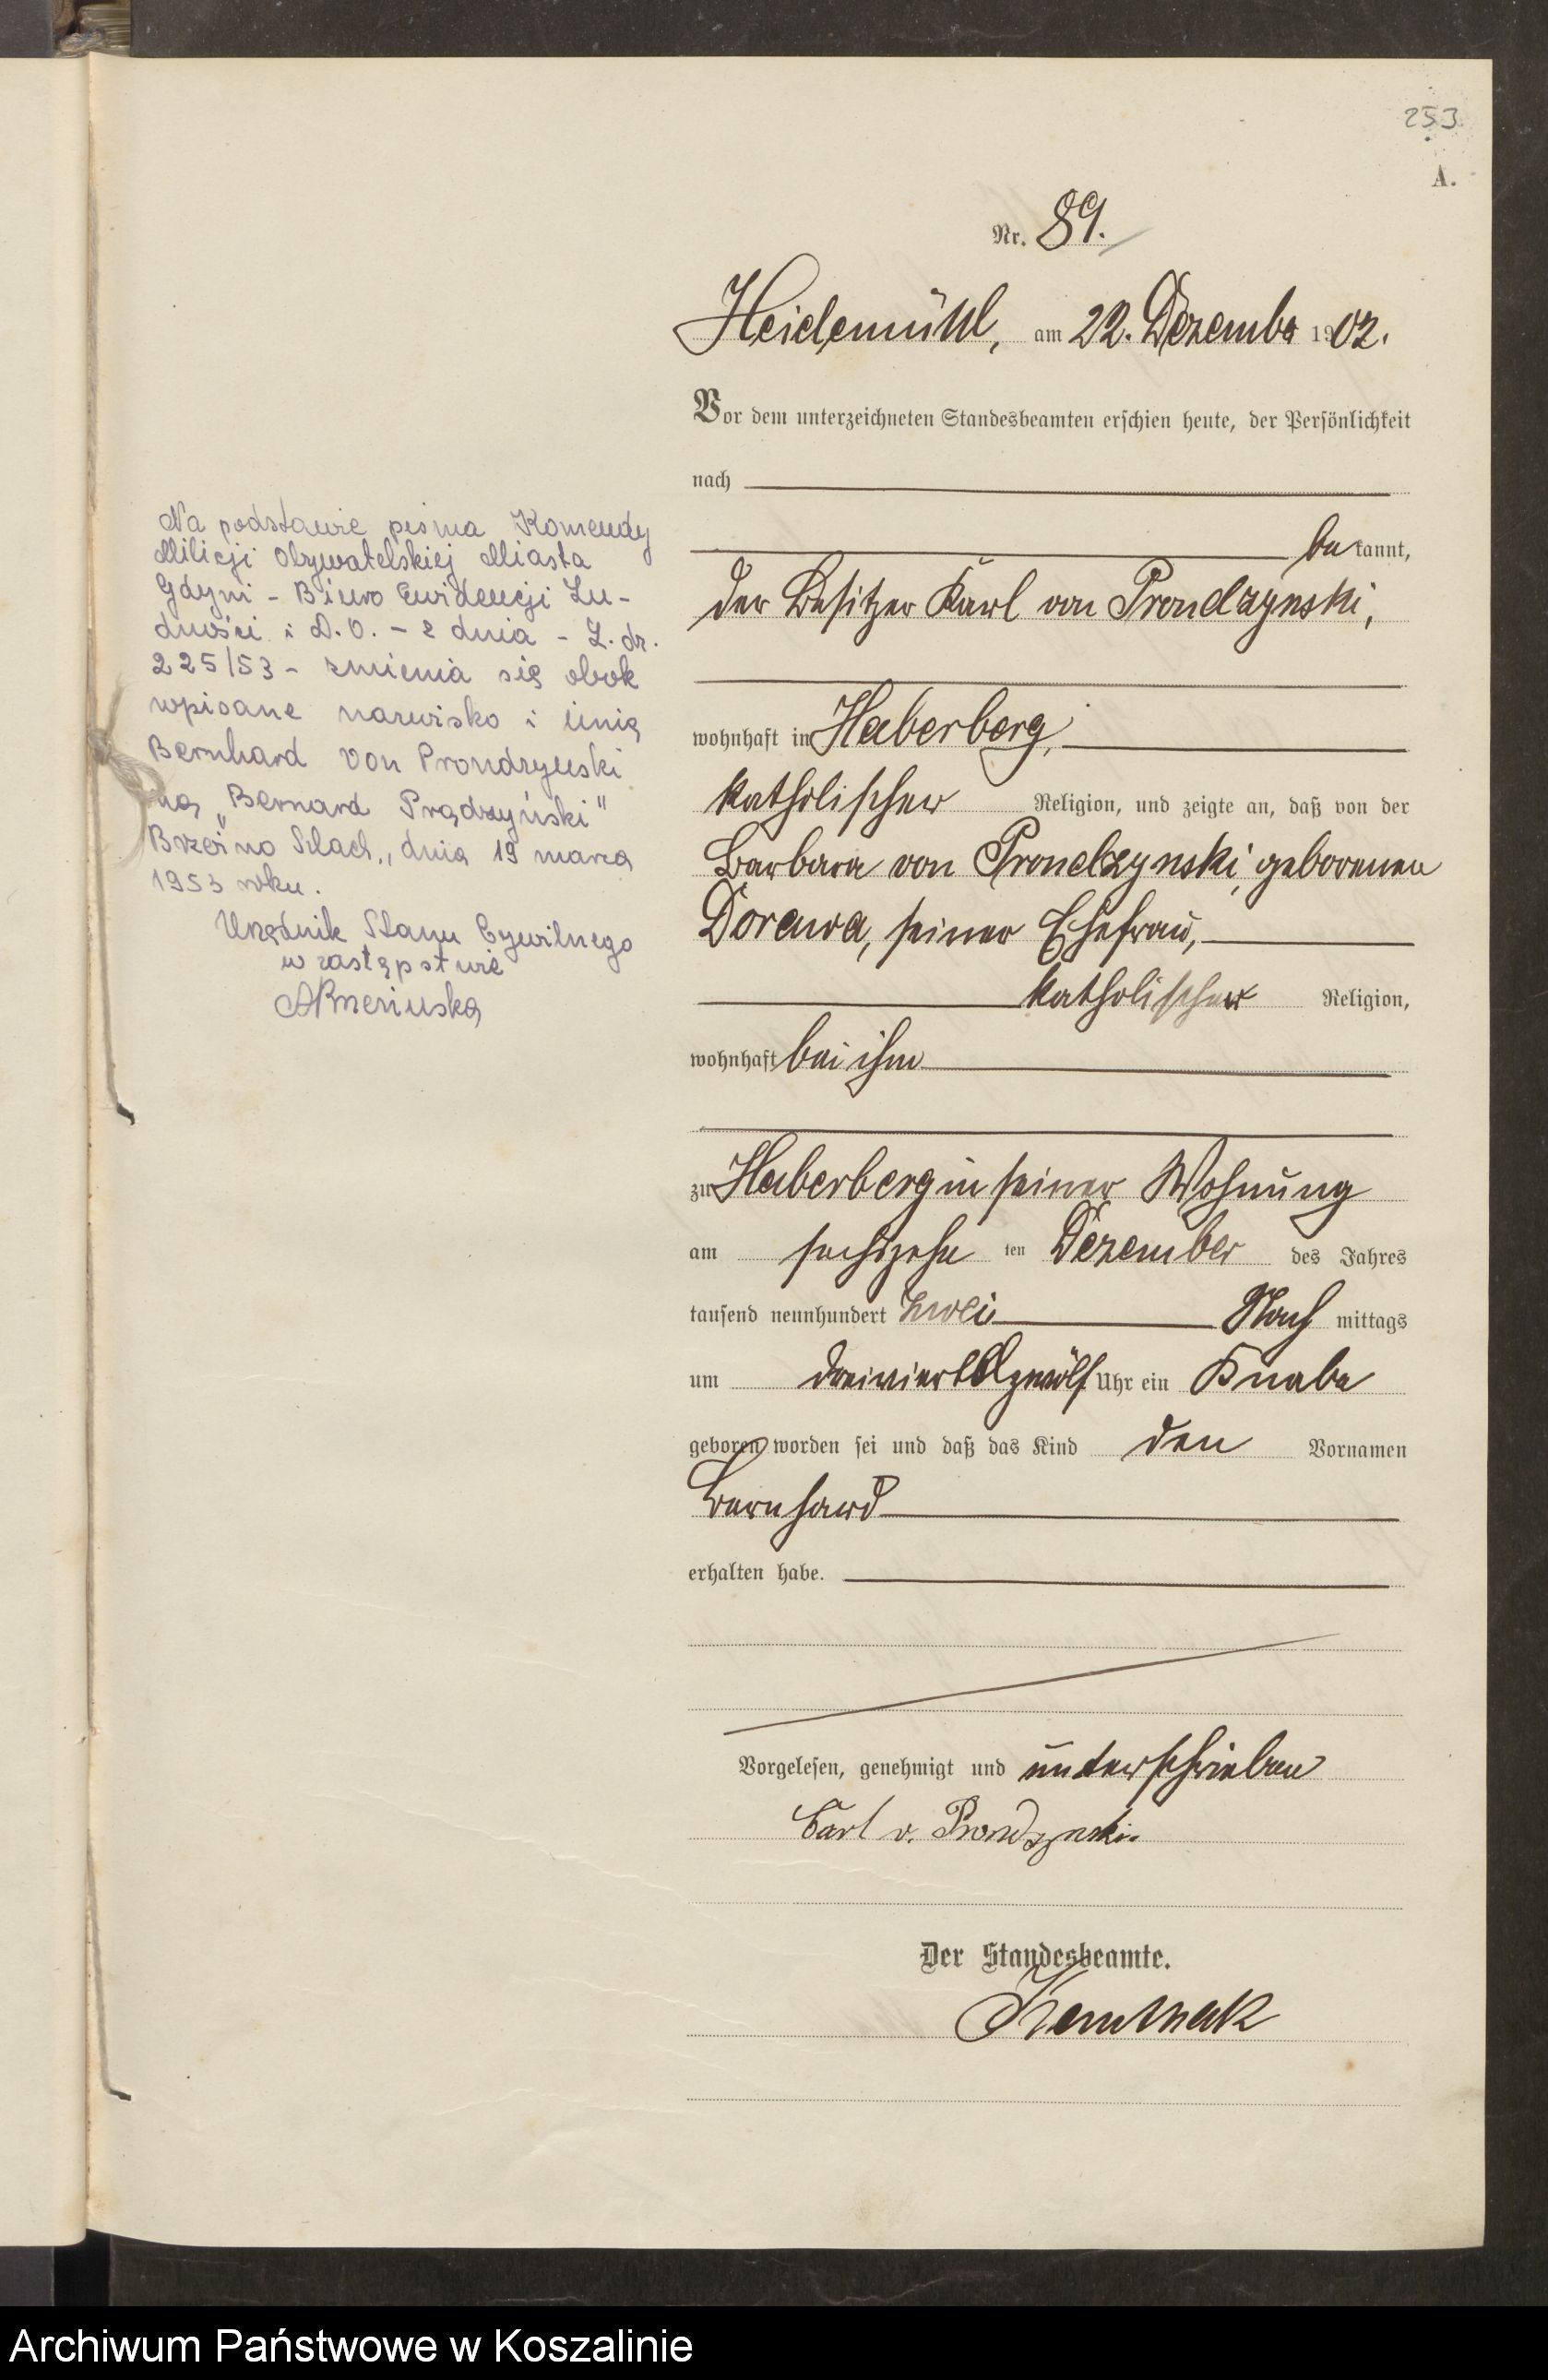 253
A.
Nr. 89.
Heidemühl, am 22. Dezember 1902.
Vor dem unterzeichneten Standesbeamten erschien heute, der Persönlichkeit
nach
bekannt,
der Besitzer Karl von Prondzynski,
wohnhaft in Haberberg,
katholischer Religion, und zeigte an, daß von der
Barbara von Prondzynski, geborenen
Dorawa, seiner Ehefrau,
katholischer Religion,
wohnhaft bei ihm
zu Haberberg in seiner Wohnung
am sechszehn ten Dezember des Jahres
tausend neunhundert zwei Nach mittags
um dreiviertelzwölf Uhr ein Knabe
geboren worden sei und daß das Kind den Vornamen
Bernhard
erhalten habe.
Vorgelesen, genehmigt und unterschrieben
Carl v. Prondzynski.
Der Standesbeamte.
Na podstawie pisma Komendy
Milicji Obywatelskiej Miasta
Gdyni - Biuro Ewidencji Lu-
dności i D.O. - z dnia - L. dz.
225/53 - zmienia się obok
wpisane nazwisko i imię
Bernhard von Prondzynski
na „Bernard Prądzyński"
Brzeźno Szlach., dnia 19 marca
1953 roku.
Urzędnik Stanu Cywilnego
w zastępstwie
Archiwum Państwowe w Koszalinie